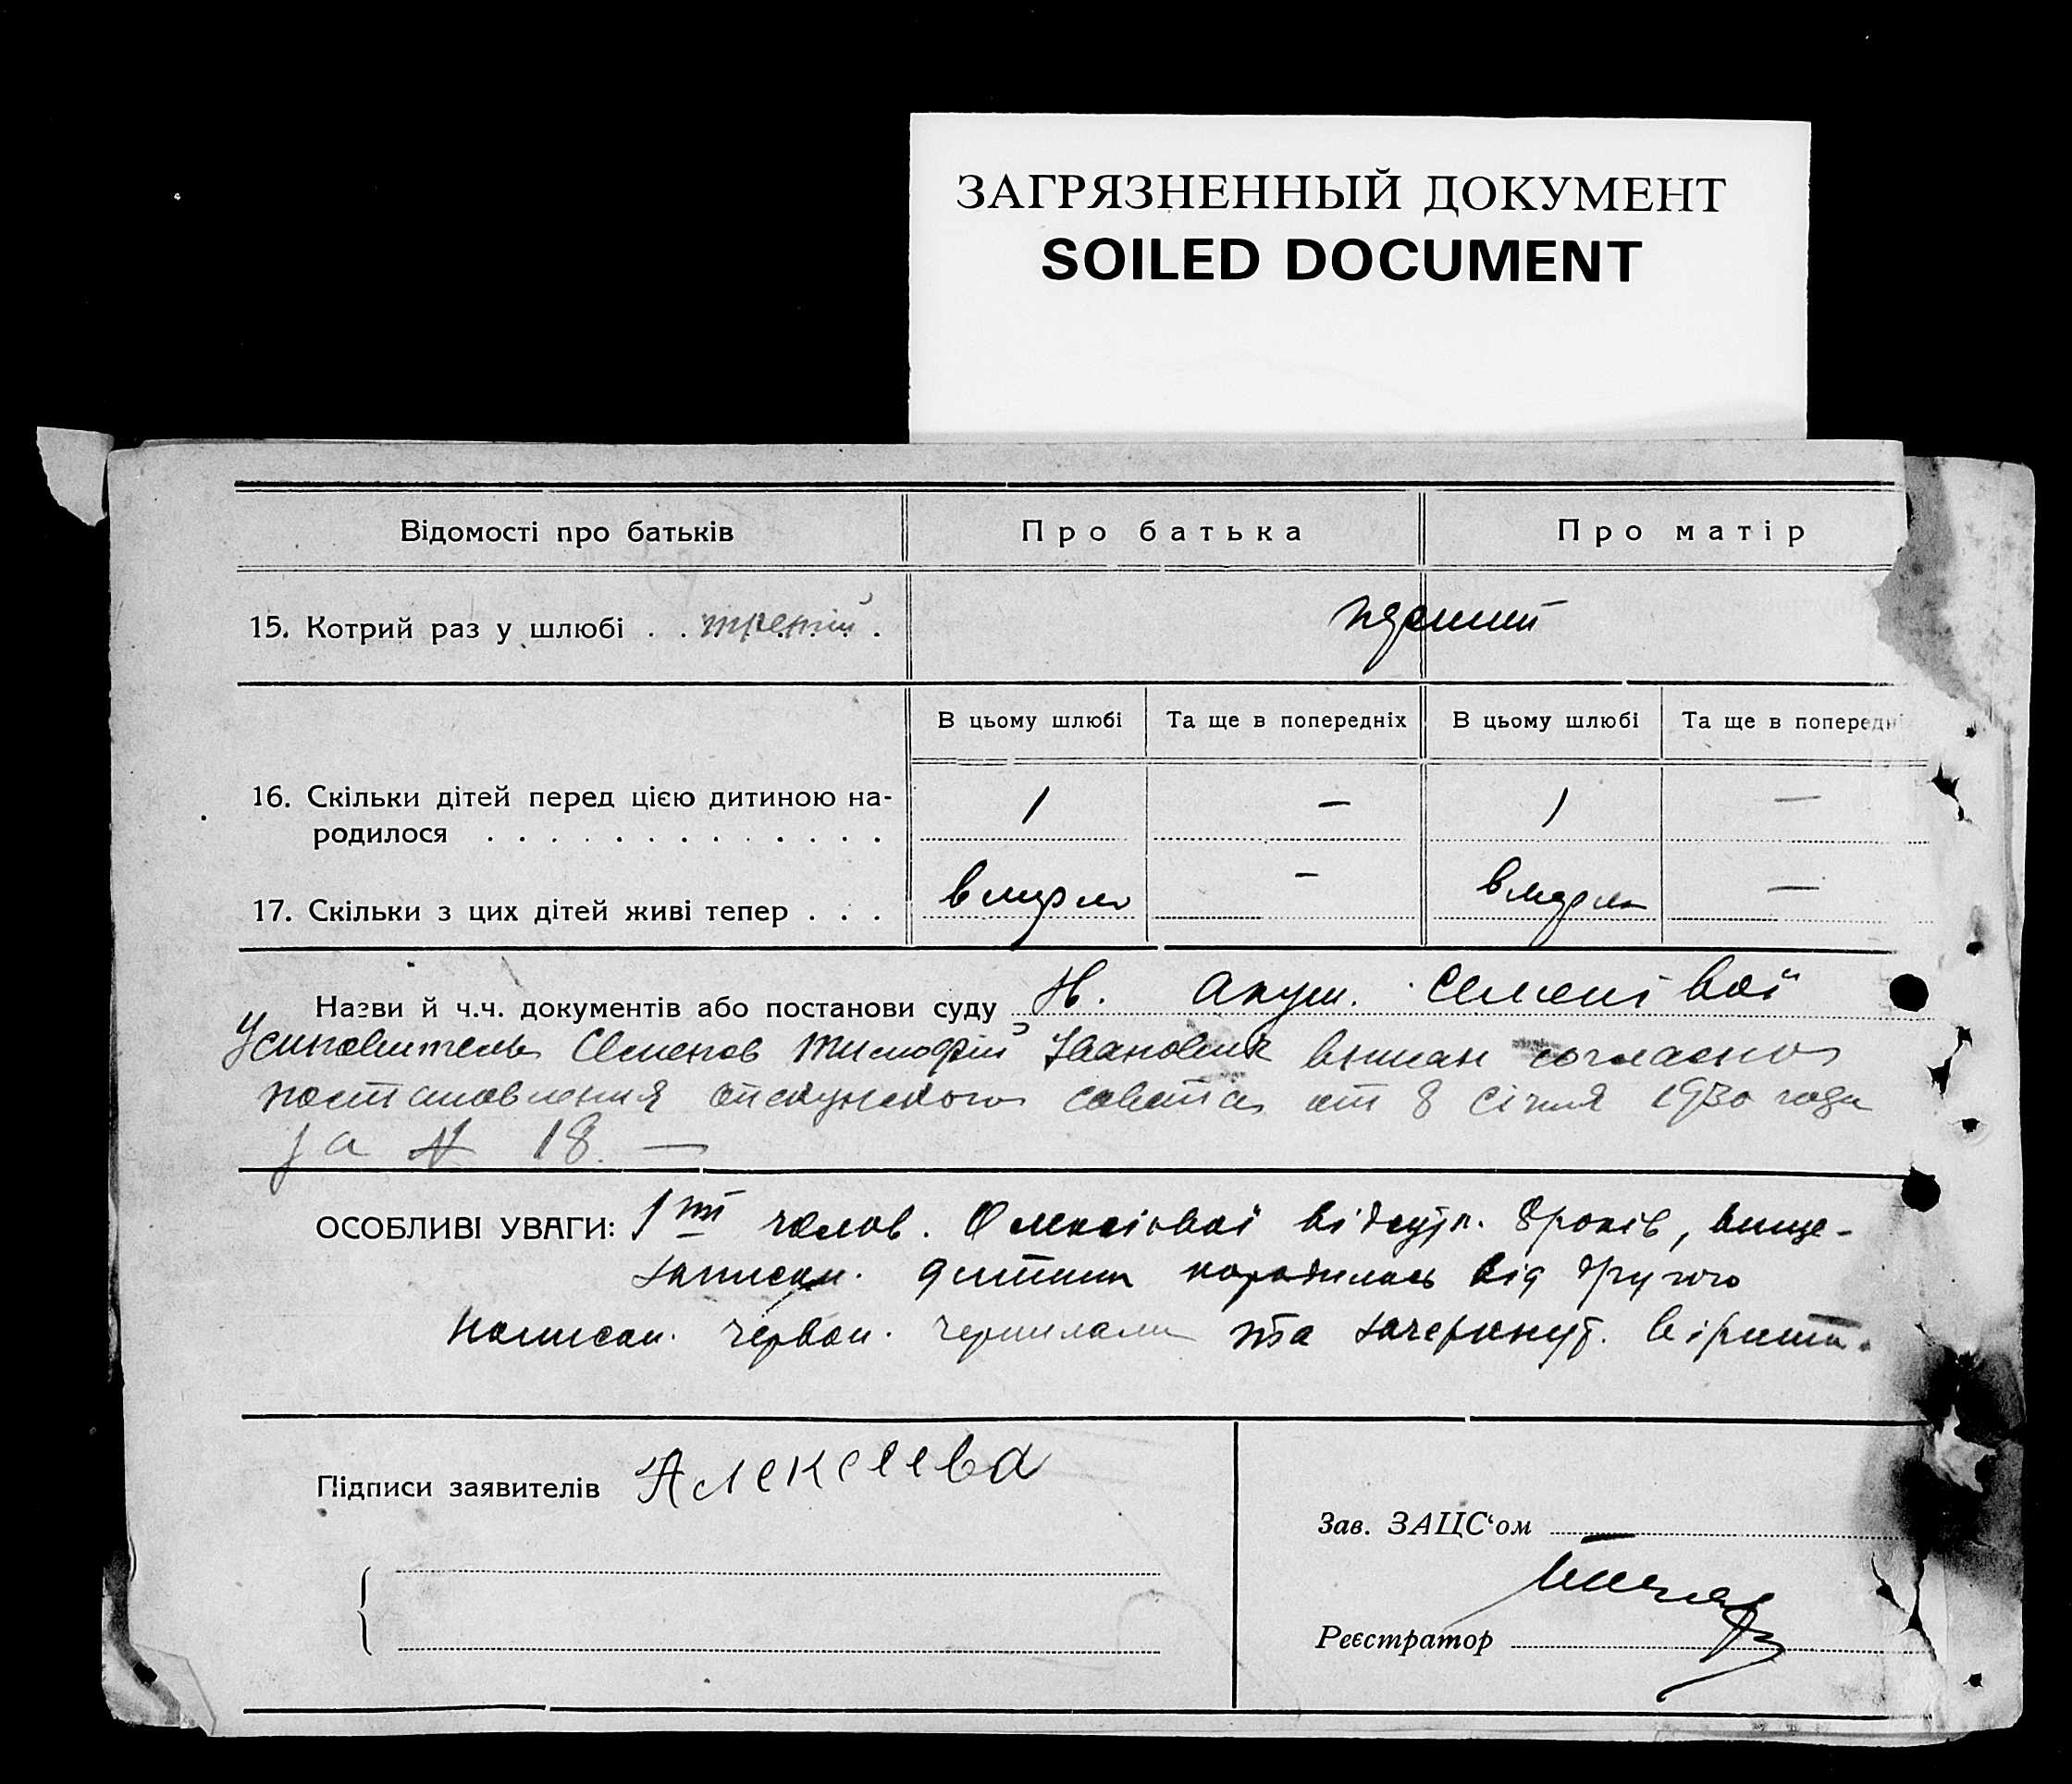 ЗАГРЯЗНЕННЫЙ ДОКУМЕНТ
SOILED DOCUMENT
Відомості про батьків
Про батька
Про матір
15. Котрий раз у шлюбі . . третій .
В цьому шлюбі
Та ще в попередніх
В цьому шлюбі
Та ще в попередні
16. Скільки дітей перед цією дитиною на-
родилося . . . . . . . . . . . . .
1
—
1
—
17. Скільки з цих дітей живі тепер . . .
вмерло
—
вмерло
—
Назви й ч.ч. документів або постанови суду Н. Акуш. Семенівої
Усиновитель Семенов Тимофій Іванович вписан согласно
постановления опекунского совета от 8 січня 1930 года
за N 18. —
ОСОБЛИВІ УВАГИ: 1ый чолов. Олексієвої відсутн. 8 років, вище-
записан. дитина народилась від другого
Написан. червон. чернилами та зачеркнут. вірити.
Підписи заявителів Алексеева
Зав. ЗАЦС‘ом
Реєстратор